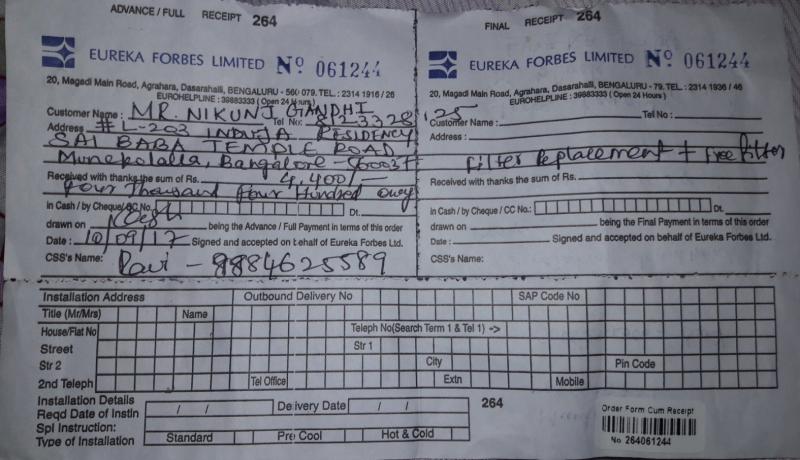 ADVANCE / FULL RECEIPT 264
EUREKA FORBES LIMITED No 061244
20, Magadi Main Road, Agrahara, Dasarahalli, BENGALURU - 560 079. TEL. : 2314 1916 / 26
EUROHELPLINE : 39883333 (Open 24 Hours)
Customer Name : MR. NIKUNJ GANDHI
Tel No:
Address # L-203 INDEJA RESIDENCY
SAI BABA TEMPLE ROAD
Munekolalla, Bangalore - 560037
Received with thanks the sum of Rs. 4,400/-
Four Thousand Four Hundred only
in Cash / by Cheque/CC No. Dt.
drawn on Cash being the Advance / Full Payment in terms of this order
Date : 10/09/17 Signed and accepted on behalf of Eureka Forbes Ltd.
CSS's Name: Ravi - 9884625589
FINAL RECEIPT 264
EUREKA FORBES LIMITED No 061244
20, Magadi Main Road, Agrahara, Dasarahalli, BENGALURU - 79. TEL. : 2314 1936 / 46
EUROHELPLINE : 39883333 (Open 24 Hours)
Customer Name : Tel No :
Address :
Filter Replacement + Free filter
Received with thanks the sum of Rs.
in Cash / by Cheque / CC No.: Dt.
drawn on being the Final Payment in terms of this order
Date : Signed and accepted on behalf of Eureka Forbes Ltd.
CSS's Name:
Installation Address Outbound Delivery No SAP Code No
Title (Mr/Mrs) Name
House/Flat No Teleph No(Search Term 1 & Tel 1) ->
Street Str 1
Str 2 City Pin Code
2nd Teleph Tel Office Extn Mobile
Installation Details
Reqd Date of Instln / / Delivery Date / / 264
Spl Instruction:
Type of Installation Standard Pre Cool Hot & Cold
Order Form Cum Receipt
No 264061244